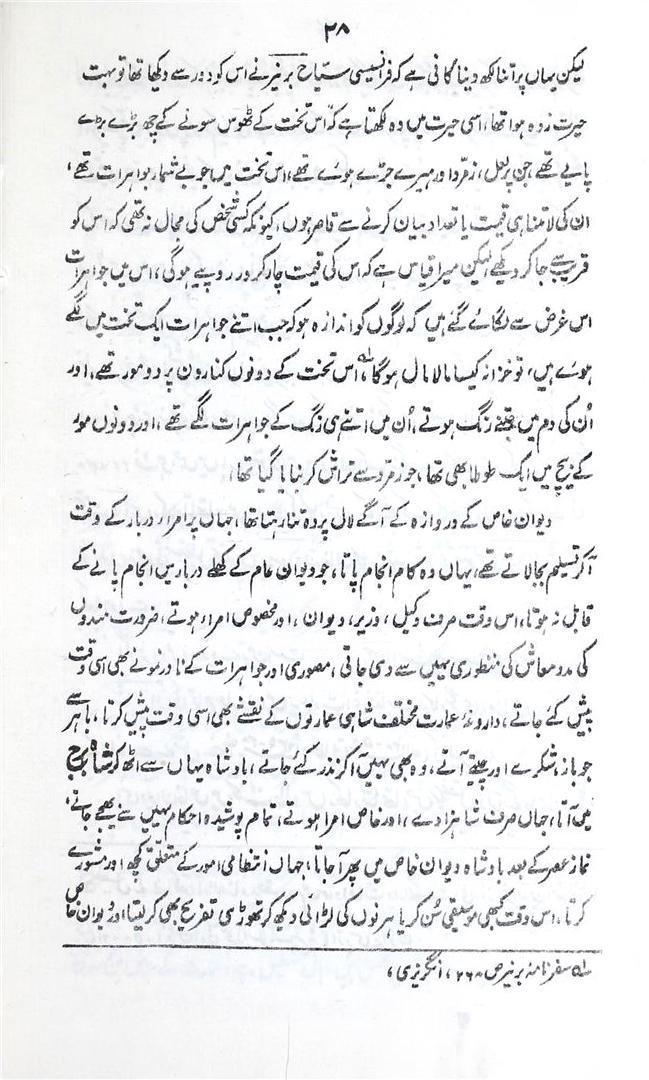 ۳۸
لیکن یہاں پر اتنا لکھ دینا کافی ہے کہ فرانسیسی سیّاح برنیر نے اس کو دور سے دیکھا تھا تو بہت
حیرت زدہ ہوا تھا، اسی حیرت میں وہ لکھتا ہے کہ اس تخت کے ٹھوس سونے کے چھ بڑے بڑے
پایے تھے، جن پر لعل، زمرّد اور ہیرے جڑے ہوئے تھے، اس تخت میں جو بے شمار جواہرات تھے،
ان کی لامتناہی قیمت یا تعداد بیان کرنے سے قاصر ہوں، کیونکہ کسی شخص کی مجال نہ تھی کہ اس کو
قریب سے جا کر دیکھے، لیکن میرا قیاس ہے کہ اس کی قیمت چار کرور روپیے ہوگی، اس میں جواہرات
اس غرض سے لگائے گئے ہیں کہ لوگوں کو اندازہ ہو کہ جب اتنے جواہرات ایک تخت میں لگے
ہوئے ہیں، تو خزانہ کیسا مالا مال ہوگا، اس تخت کے دونوں کنارون پر دو مور تھے، اور
اُن کی دم میں جتنے رنگ ہوتے، اُن میں اتنے ہی رنگ کے جواہرات لگے تھے، اور دونوں مور
کے بیچ میں ایک طوطا بھی تھا، جو زمرّد سے تراش کر بنایا گیا تھا،
دیوان خاص کے دروازہ کے آگے لال پردہ تنا رہتا تھا، جہاں پر امراء دربار کے وقت
آکر تسلیم بجا لاتے تھے، یہاں وہ کام انجام پاتا، جو دیوان عام کے کھلے دربار میں انجام پانے کے
قابل نہ ہوتا، اس وقت صرف وکیل، وزیر، دیوان، اور مخصوص امراء ہوتے، ضرورت مندوں
کی مدد معاش کی منظوری یہیں سے دی جاتی، مصوری اور جواہرات کے نادر نمونے بھی اسی وقت
پیش کئے جاتے، داروغۂ عمارت مختلف شاہی عمارتوں کے نقشے بھی اسی وقت پیش کرتا، باہر سے
جو باز، شکرے اور چیتے آتے، وہ بھی یہیں آکر نذر کئے جاتے، بادشاہ یہاں سے اٹھ کر شاہ برج
میں آتا، جہاں صرف شاہزادے، اور خاص امراء ہوتے، تمام پوشیدہ احکام یہیں سے بھیجے جاتے،
نماز عصر کے بعد بادشاہ دیوان خاص میں پھر آجاتا، جہاں انتظامی امور کے متعلق کچھ اور مشورے
کرتا، اس وقت کبھی موسیقی سُن کر یا ہرنوں کی لڑائی دیکھ کر تھوڑی تفریح بھی کر لیتا اور دیوان خاص
لہ سفرنامہ برنیر ص ۲۶۸، انگریزی،